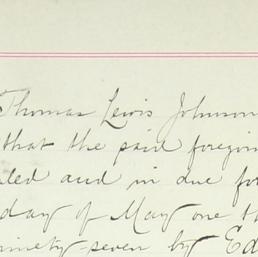 Thomas Lewis Johnson
that the said foregoin
led and in due fo
day of May one t
ninety-seven by Ed